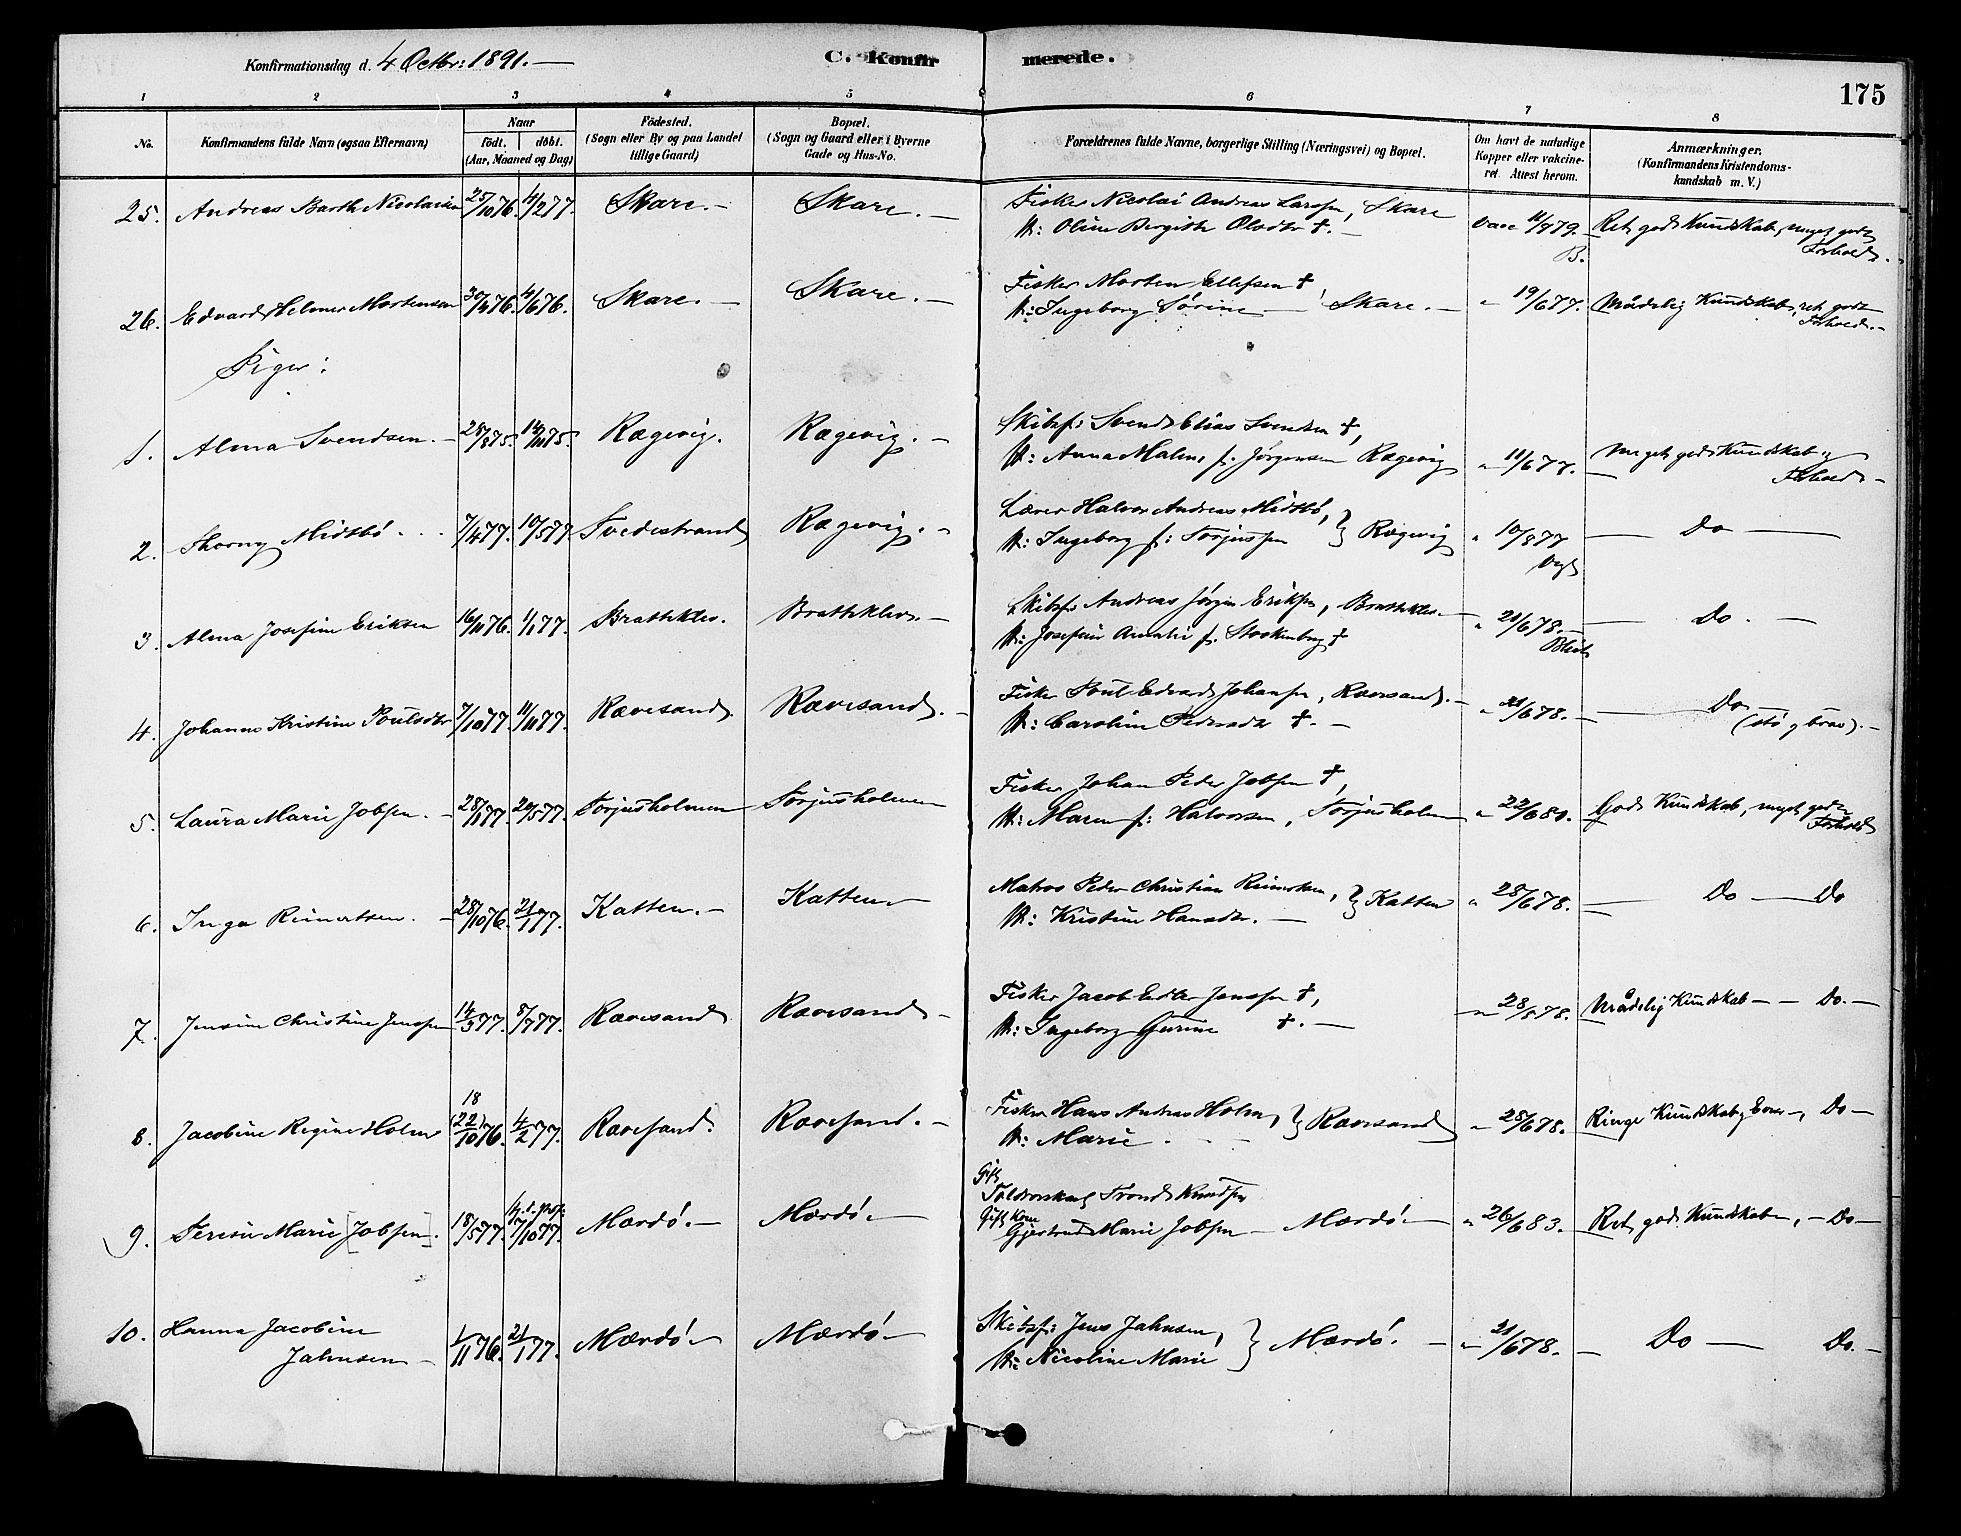 Konfirmationsdag d. 4 Octbr: 1891. —
C. Konfirmerede.
175
1 2 3 4 5 6 7 8
No.
Konfirmandens fulde Navn (ogsaa Efternavn)
Naar
födt. döbt.
(Aar, Maaned og Dag)
Födested.
(Sogn eller By og paa Landet
tillige Gaard)
Bopæl.
(Sogn og Gaard eller i Byerne
Gade og Hus-No.
Forældrenes fulde Navne, borgerlige Stilling (Næringsvei) og Bopæl.
Om havt de naturlige
Kopper eller vakcine-
ret. Attest herom.
Anmærkninger.
(Konfirmandens Kristendoms-
kundskab m. V.)
25. Andreas Barth Nicolaisen 25/10 76. 4/2 77. Skare. — Skare. —
Fisker Nicolai Andreas Larssen, Skare
H: Oline Bergitte Olsdtr †. —
Vacc 11/9 79. B.
Ret god Kundskab, meget godt
Forhold. —
26. Edvard Helmer Mortensen 30/4 76. 4/6 76. Skare. — Skare. —
Fisker Morten Ellefsen †
H: Ingeborg Sørine — Skare. —
" 19/6 77.
Mådelig Kundskab, ret godt
Forhold. —
Piger:
1. Alma Svendsen. — 28/8 75. 14/11 75. Rægevig. Rægevig. —
Skibsf: Svend Elias Svendsen †,
H: Anna Malene f: Jørgensen Rægevig
" 11/6 77. —
Meget god Kundskab og
Forhold —
2. Thorny Midtbö . . . 7/4 77. 10/5 77 Tvedestrand Rægevig. —
Lærer Halvor Andreas Midtbö,
H: Ingeborg f: Torjussen } Rægevig
" 10/8 77
— Do —
3. Alma Josefine Eriksen 16/11 76. 1/1 77. Bratteklev. Bratteklev. —
Skibsf: Andreas Jörgen Eriksen, Bratteklev. —
H: Josefine Amalie f. Stockenberg †
" 21/6 78. —
— Do. —
4. Johanne Kristine Poulsdtr 7/10 77. 11/11 77. Rævesand. Rævesand. —
Fisker Poul Edvard Johansen, Rævesand. —
H: Caroline Pedersdtr †. —
" 21/6 78. —
— Do —
(stö og brav). —
5. Laura Marie Jobsen. — 28/1 77. 20/5 77. Torjusholmen Torjusholmen
Fisker Johan Peder Jobsen †,
H: Maren f: Halvorsen, Torjusholm
" 22/6 80.
God Kundskab, meget godt
Forhold
6. Inga Reinertsen. — 28/10 76. 21/1 77. Katten. — Katten —
Matros Peder Christian Reinertsen,
H: Kristine Hansdtr. — } Katten
" 28/6 78.
— Do — Do
7. Jensine Christine Jenssen 14/3 77. 8/7 77. Rævesand Rævesand —
Fisker Jacob Edler Jenssen †,
H: Ingeborg Gurine †. —
" 28/8 78.
Mådelig Kundskab — — Do. —
8. Jacobine Regine Holm 18 (22)/10 76. 4/2 77. Rævesand. Rævesand. —
Fisker Hans Andreas Holm,
H: Marie . — — } Rævesand
" 28/6 78.
Ringe Kundskab, — Do —
9. Teresie Marie [Jobsen]. 18/5 77. 7/10 77. Mærdö. — Mærdö —
Gift Toldvorskarl Trond Knudsen
Gift Kone Gjertrud Marie Jobsen — Mærdö —
" 26/6 83.
Ret god Kundskab, — Do —
10. Hanna Jacobine
Jahnsen — 1/11 76. 21/1 77. Mærdö — Mærdö —
Skibsf: Jens Jahnsen,
H: Nicoline Marie } Mærdö. —
" 21/6 78. —
Do — Do. —